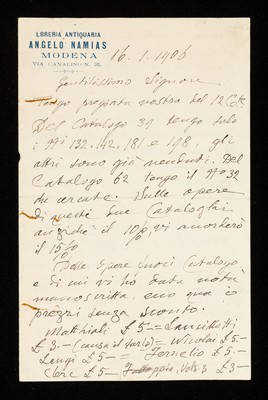 LIBRERIA ANTIQUARIA
DI
ANGELO NAMIAS
MODENA
VIA CANALINO N. 35.
16. 1. 1906
Gentilissimo Signore
Tengo pregiata vostra del 12 Cte
Del Catalogo 39 tengo solo
i Ni 132. 142. 181 e 198, gli
altri sono già venduti. Del
Catalogo 62 tengo il No 32
che cercate. Sulle opere
di questi due Cataloghi
anzichè il 10%, vi accorderò
il 15%
Delle opere fuori Catalogo
e di cui vi ho data nota
manoscritta, ecco qua i
prezzi senza sconto.
Matthioli £ 5 = Lancillotti
£ 3. – (causa il tarlo) = Nicolai £ 5 –
£ 5 – = Fernelio £ 5. –
£ 5 – Vols. 3 £ 3 –